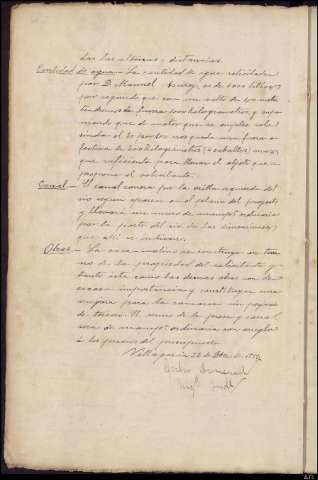 das las alturas y distancias.
Cantidad de agua = La cantidad de agua solicitada
por D. Manuel es de 1000 litros
por segundo que con un salto de
tendremos de fuerza 1000 kilogrametros y supo
niendo que el motor que se emplee solo
rinda el 30 por % nos queda una fuerza e
fectiva de 300 kilogrametros (4 caballos) mas
que suficiente para llenar el objeto que se
propone el solicitante.
Canal = El canal correrá por la orilla izquierda del
rio segun aparece en el plano del proyecto
y llevará un muro de mamposteria ordinaria
por la parte del rio de las dimensiones
que alli se indican.
Obras = La casa-molino se construye en terre
no de la propiedad del solicitante y
tanto esta como las demas obras son de
escasa importancia y constituyen una
mejora para la comarca sin perjuicio
de tercero. El muro de la presa y canal,
sera de mamposteria ordinaria con arreglo
á los precios del presupuesto.
Villagarcia 22 de de